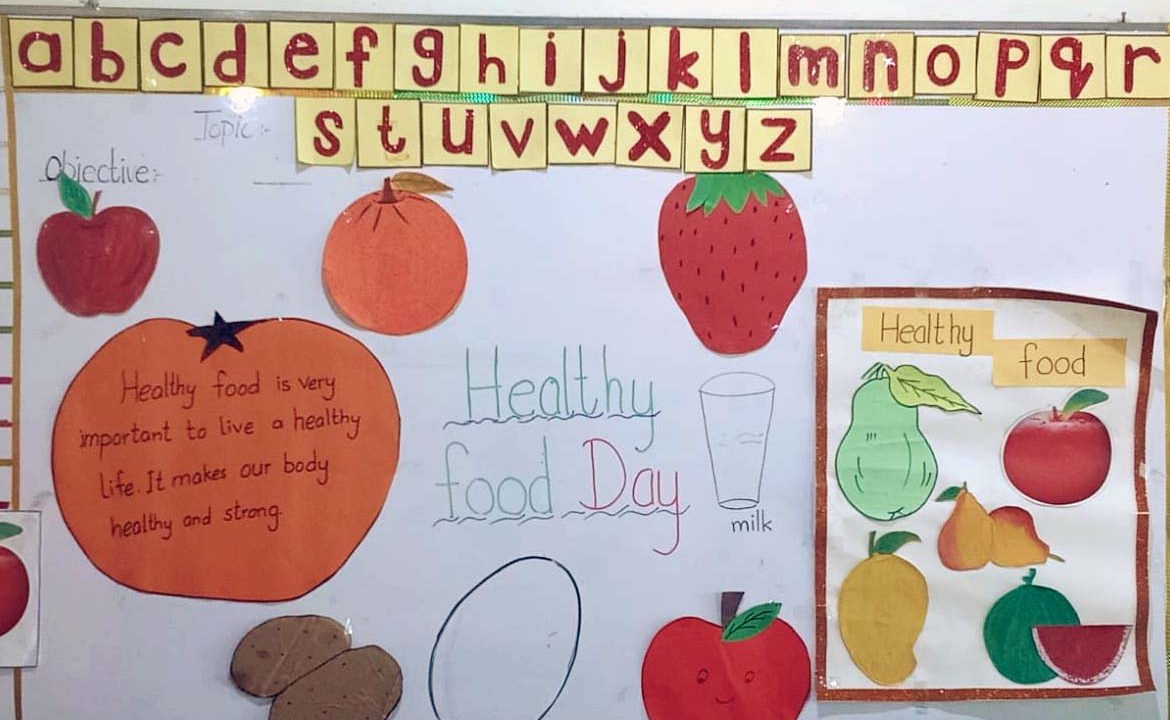 a b c d e f g h i j k l m n o p q r
s t u v w x y z
Topic:-
Objective:-
Healthy food is very
important to live a healthy
life. It makes our body
healthy and strong.
Healthy
food Day
milk
Healthy
food